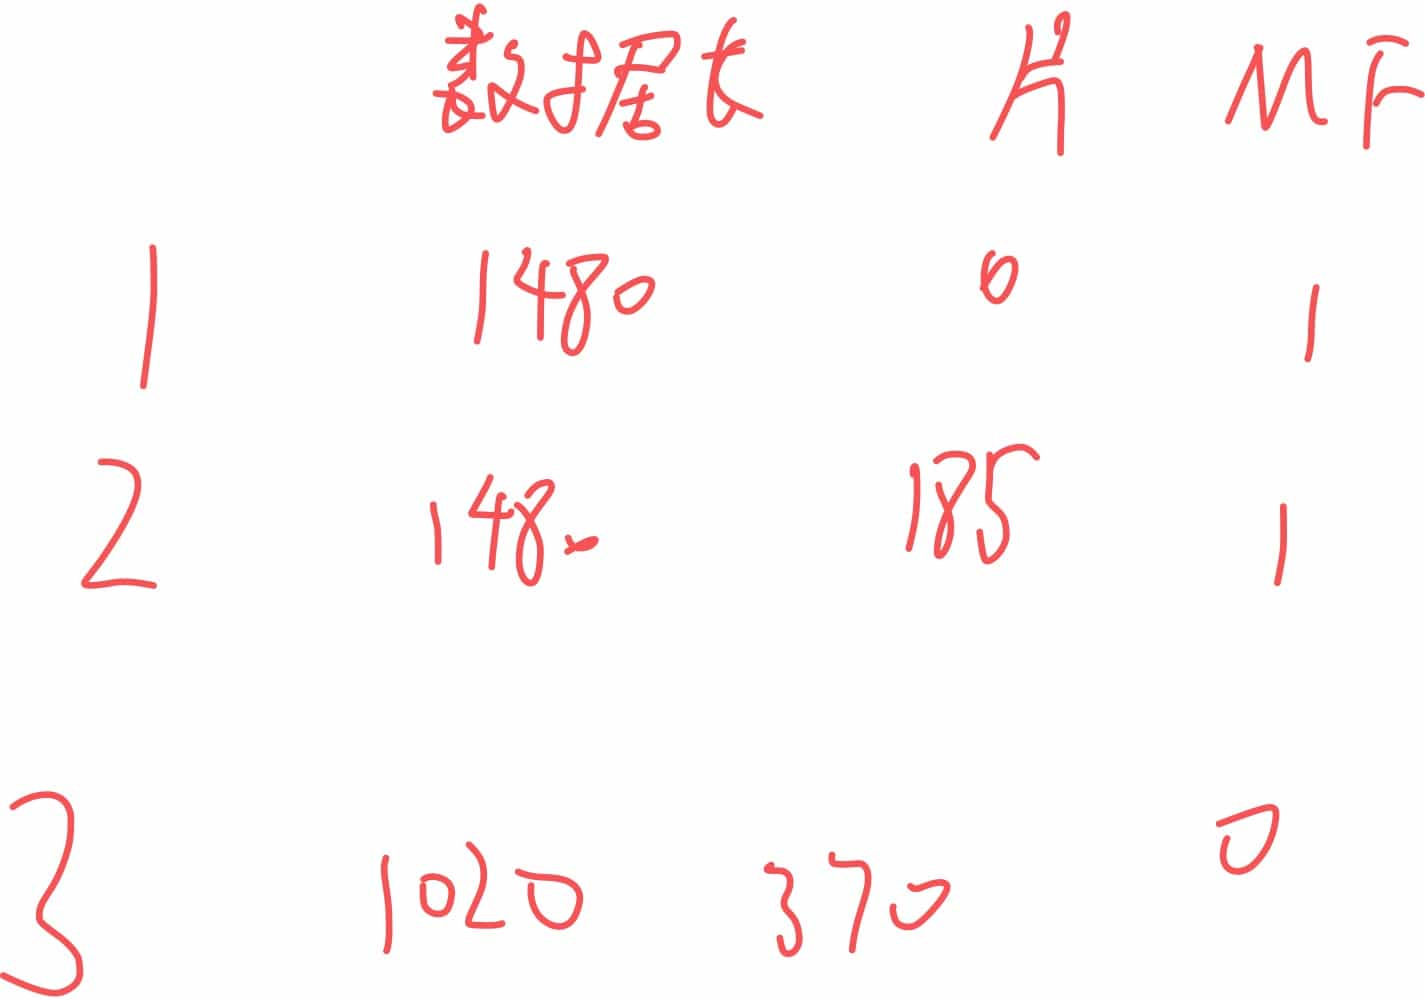 数据长 片 MF
1 1480 0 1
2 1480 185 1
3 1020 370 0